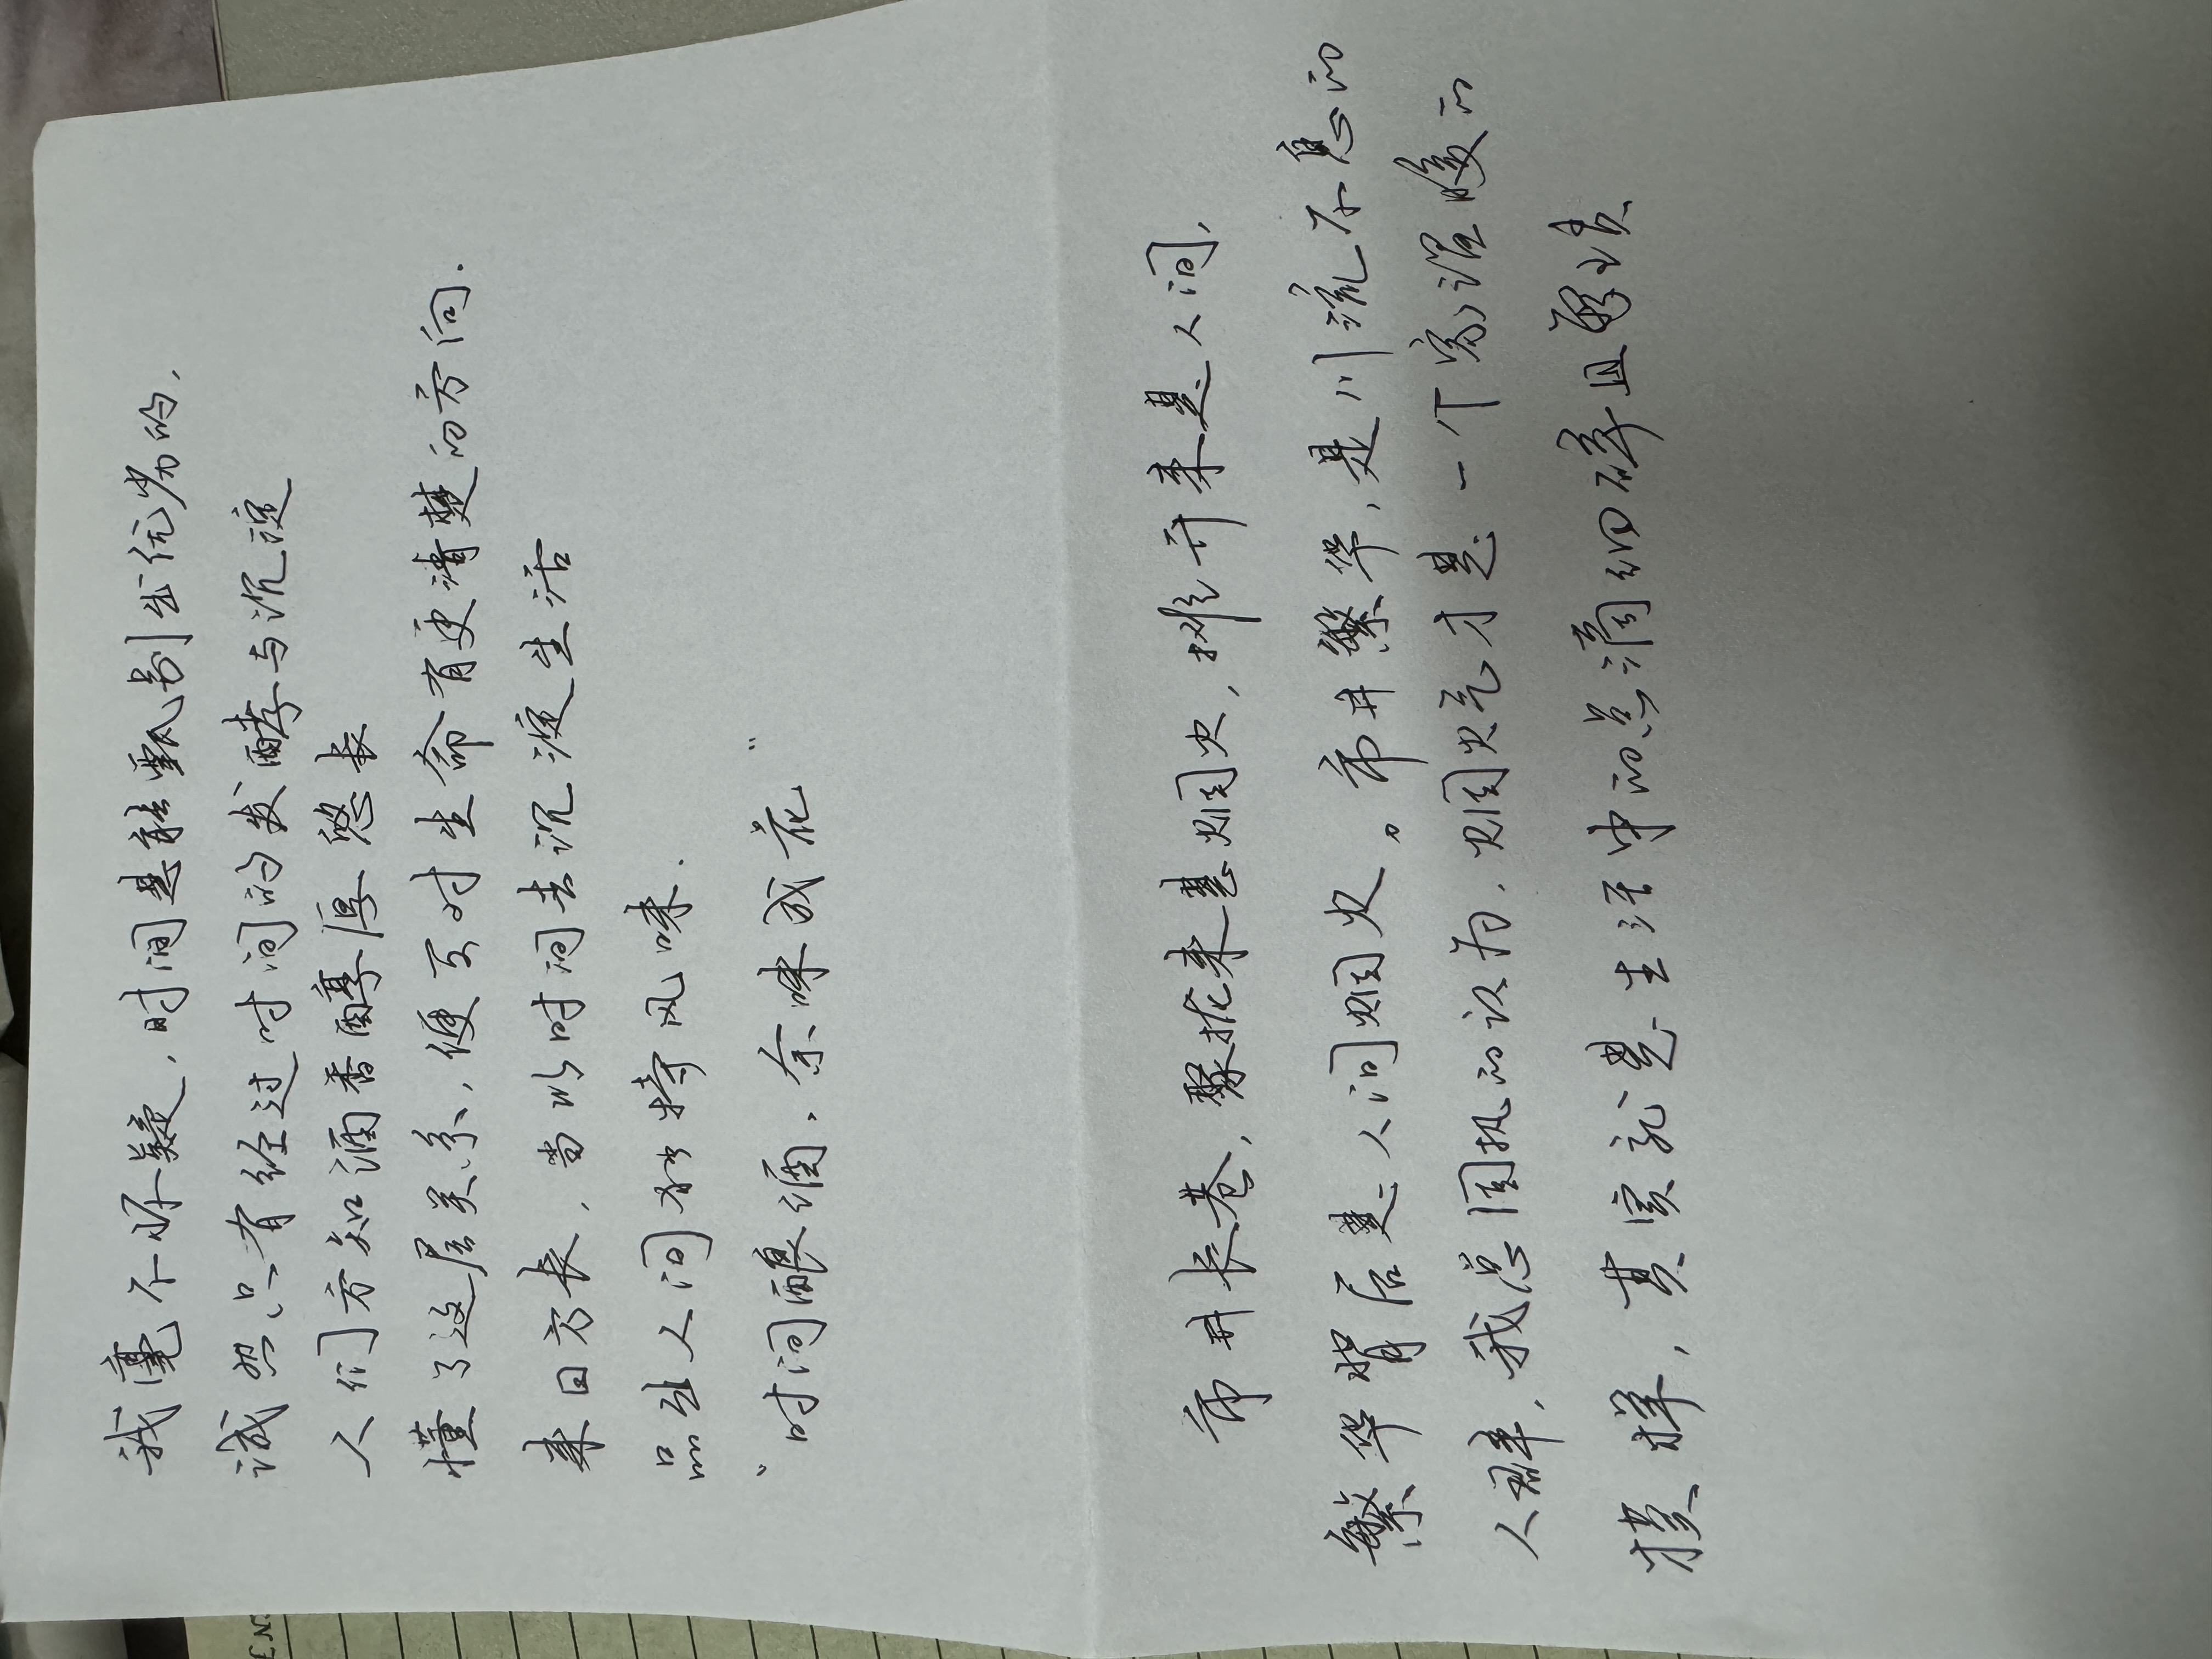 我毫不怀疑，时间是能甄别出优劣的，
诚然只有经过时间的发酵与沉淀
人们方知酒香醇厚悠长
懂了这层关系，便可对生命有更清楚的方向.
来日方长，当以时间去沉淀生活
品出人间独特风味.
“时间酿酒，余味成花”
市井长巷，聚拢来是烟火，摊开来是人间，
繁华背后是人间烟火。市井繁华，是川流不息的
人群，我总固执的认为，烟火气才是一个家温暖的
模样，其实就是生活中的点滴细碎且繁琐